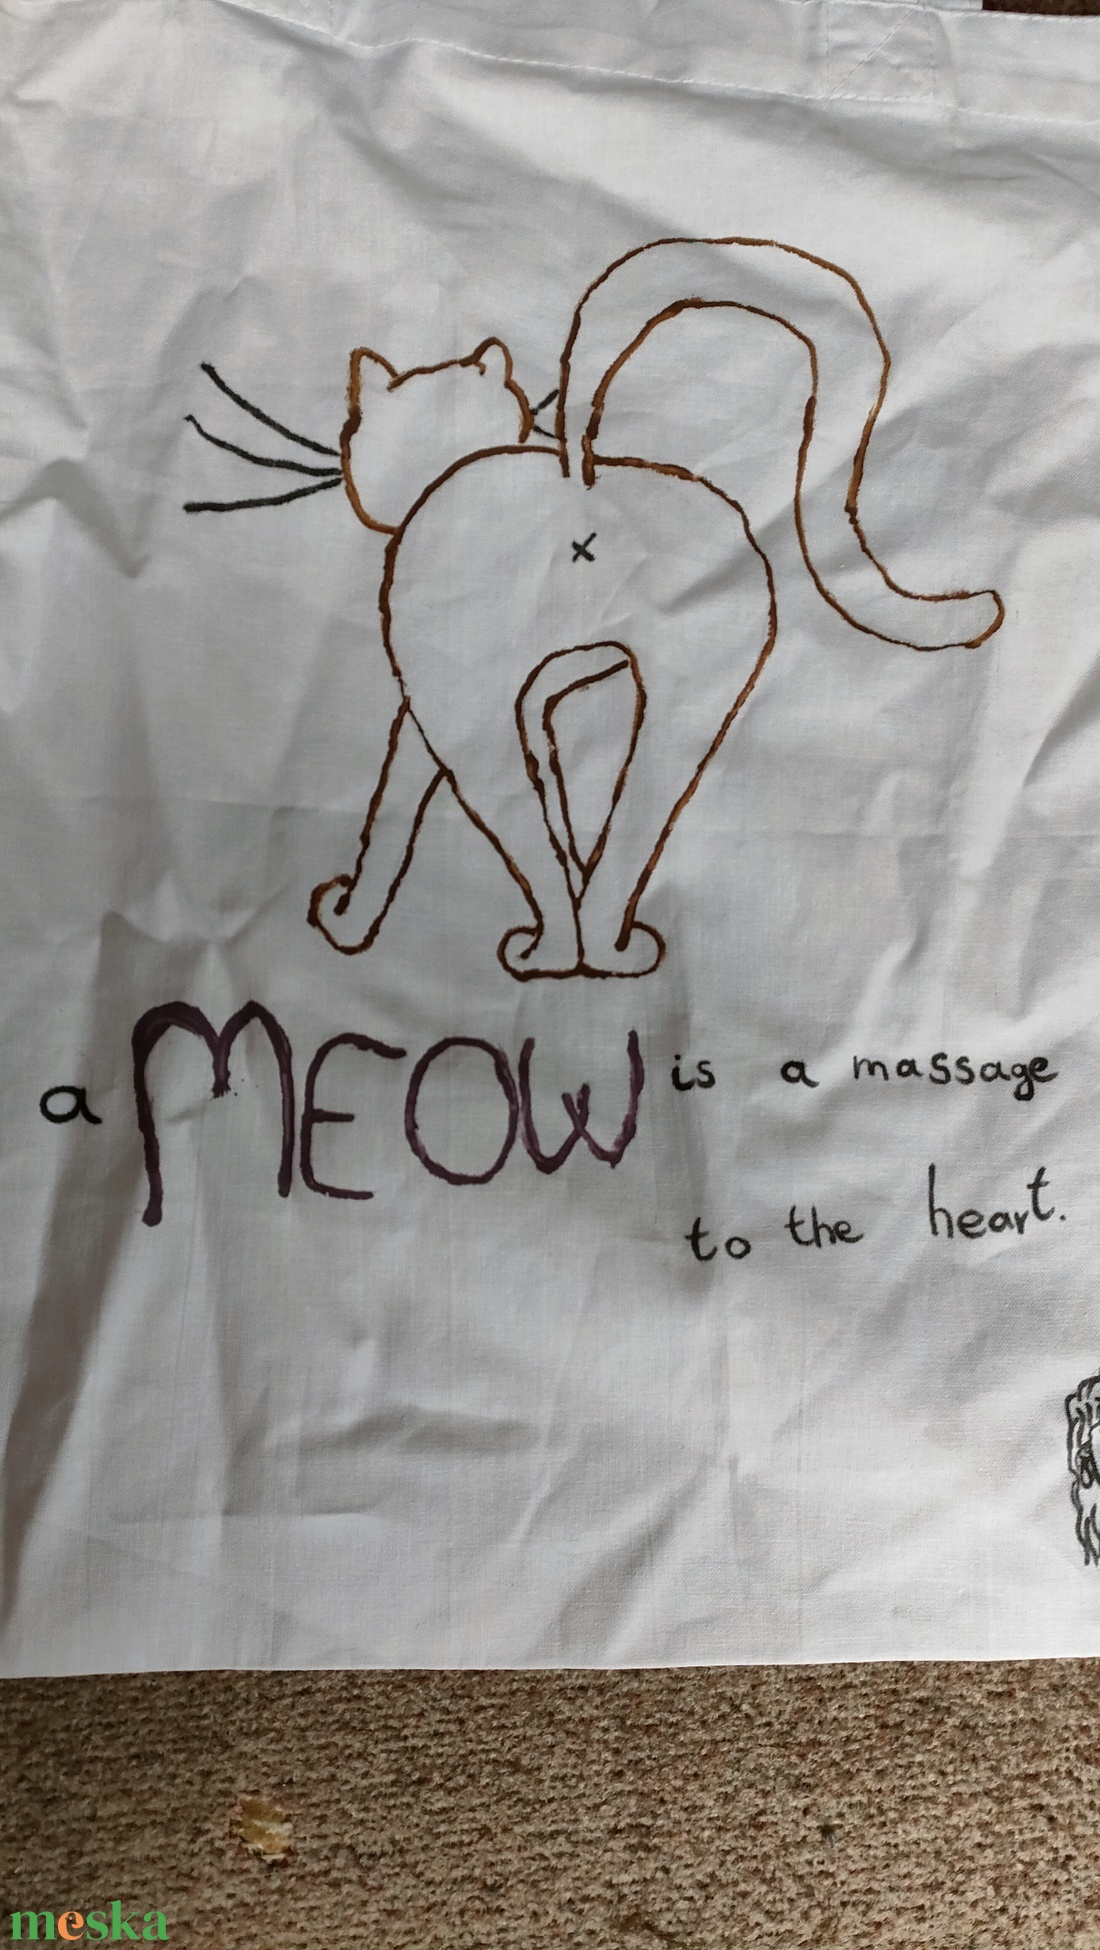 a MEOW is a massage
to the heart.
meska